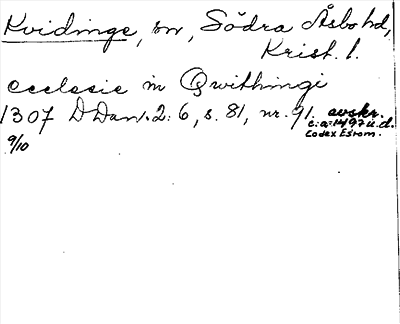 Kvidinge, sn, Södra Åsbo hd,
Krist. l.
ecclesie in Qwithingi
1307 DDan. 2: 6, s. 81, nr. 91. avskr.
c:a 1497 u.d.
Codex Esrom.
9/10